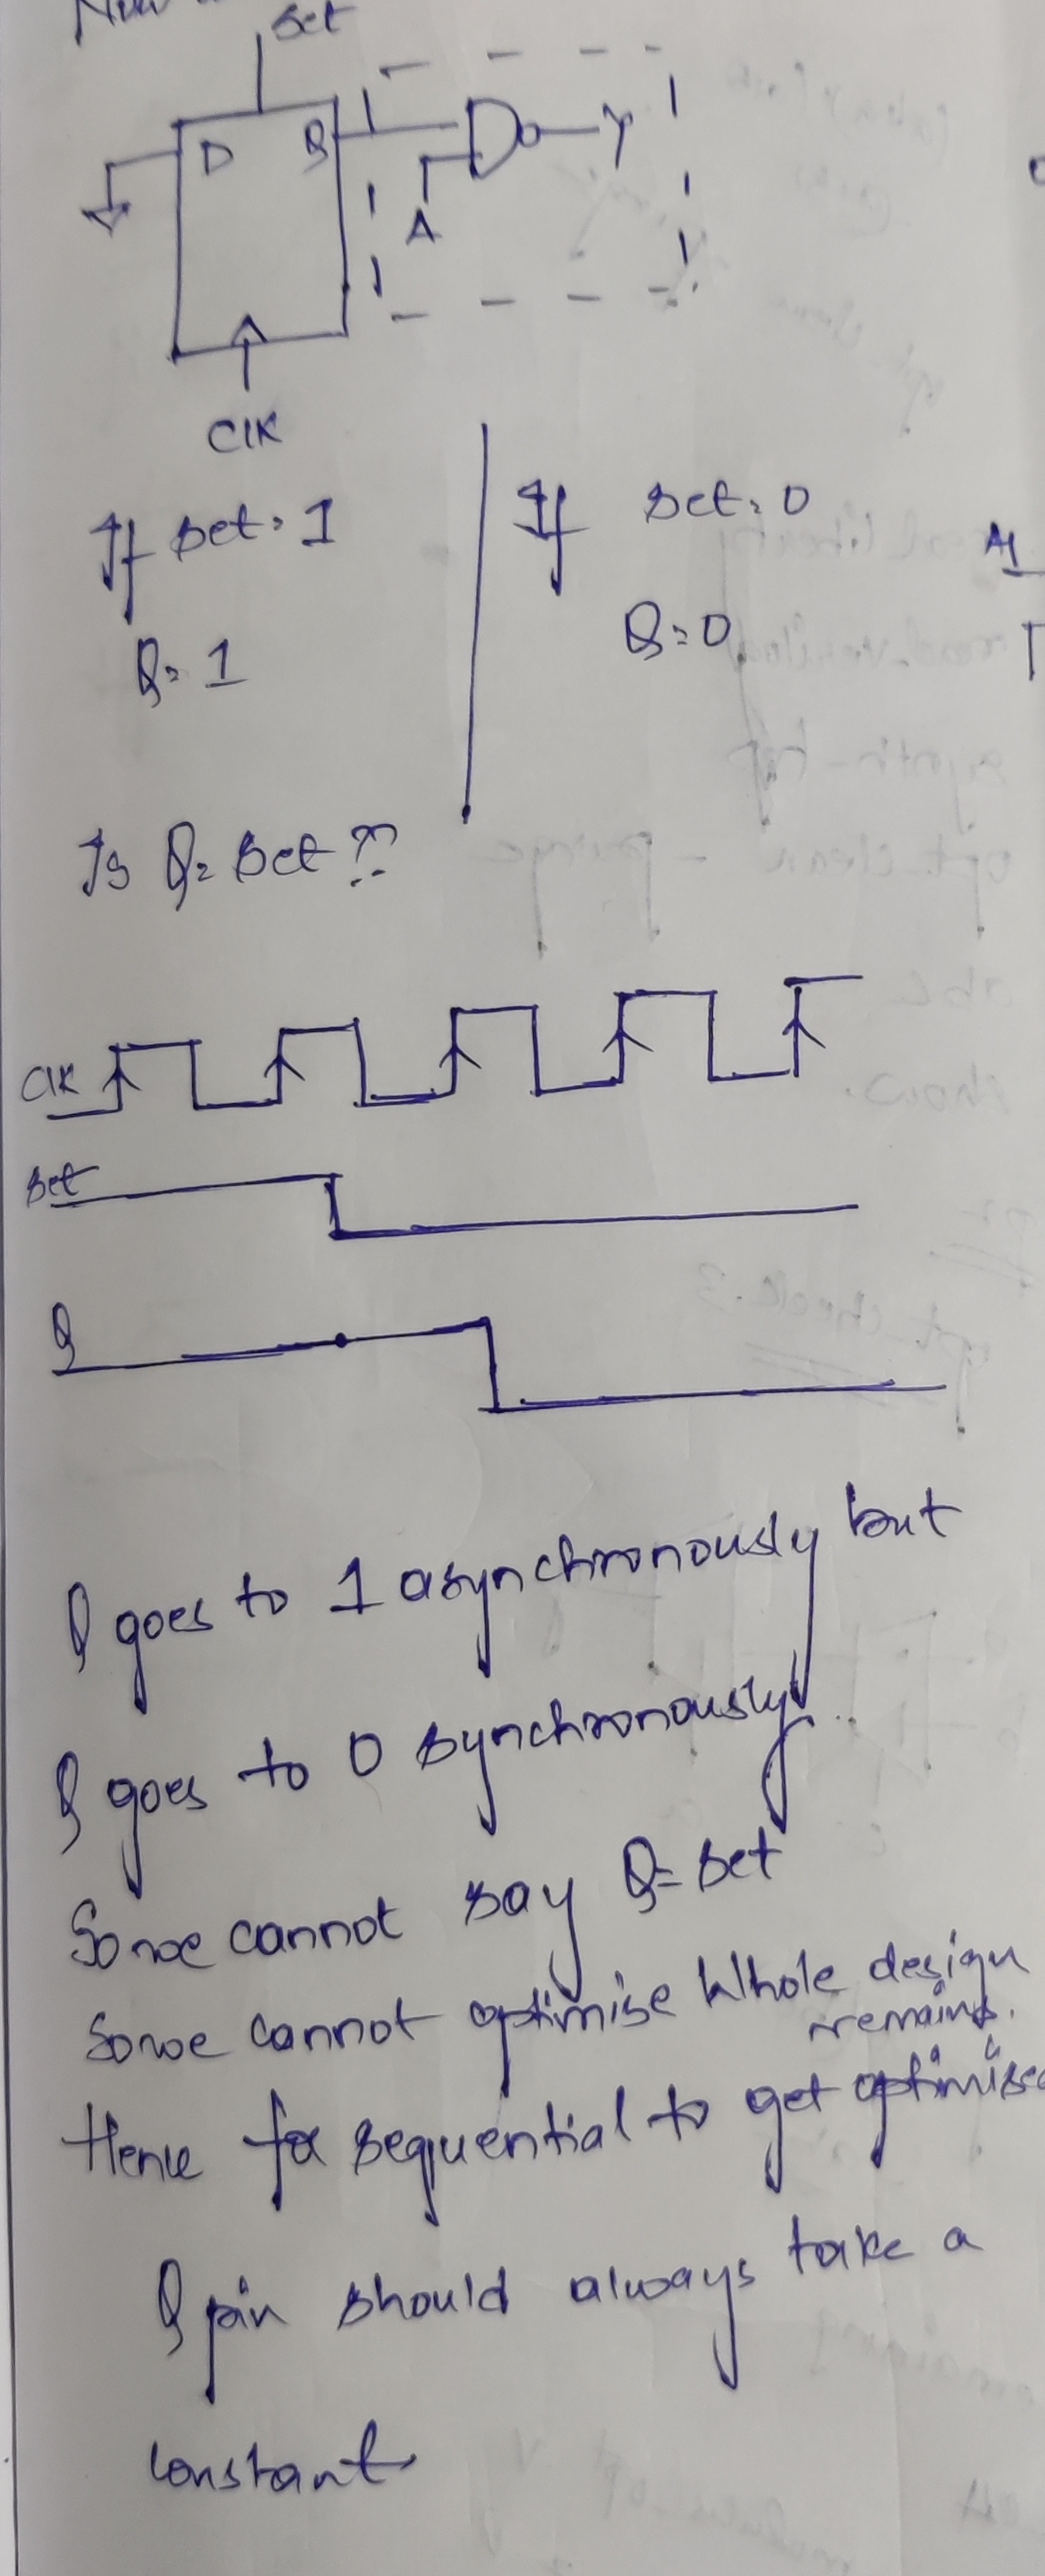 Set
D Q
Y
A
Clk
If set = 1
If set = 0
Q = 1
Q = 0
Is Q = Set ??
Clk
Set
Q
Q goes to 1 asynchronously but
Q goes to 0 synchronously..
So we cannot say Q = Set
So we cannot optimise Whole design
remains.
Hence for sequential to get optimised
Q pin should always take a
constant